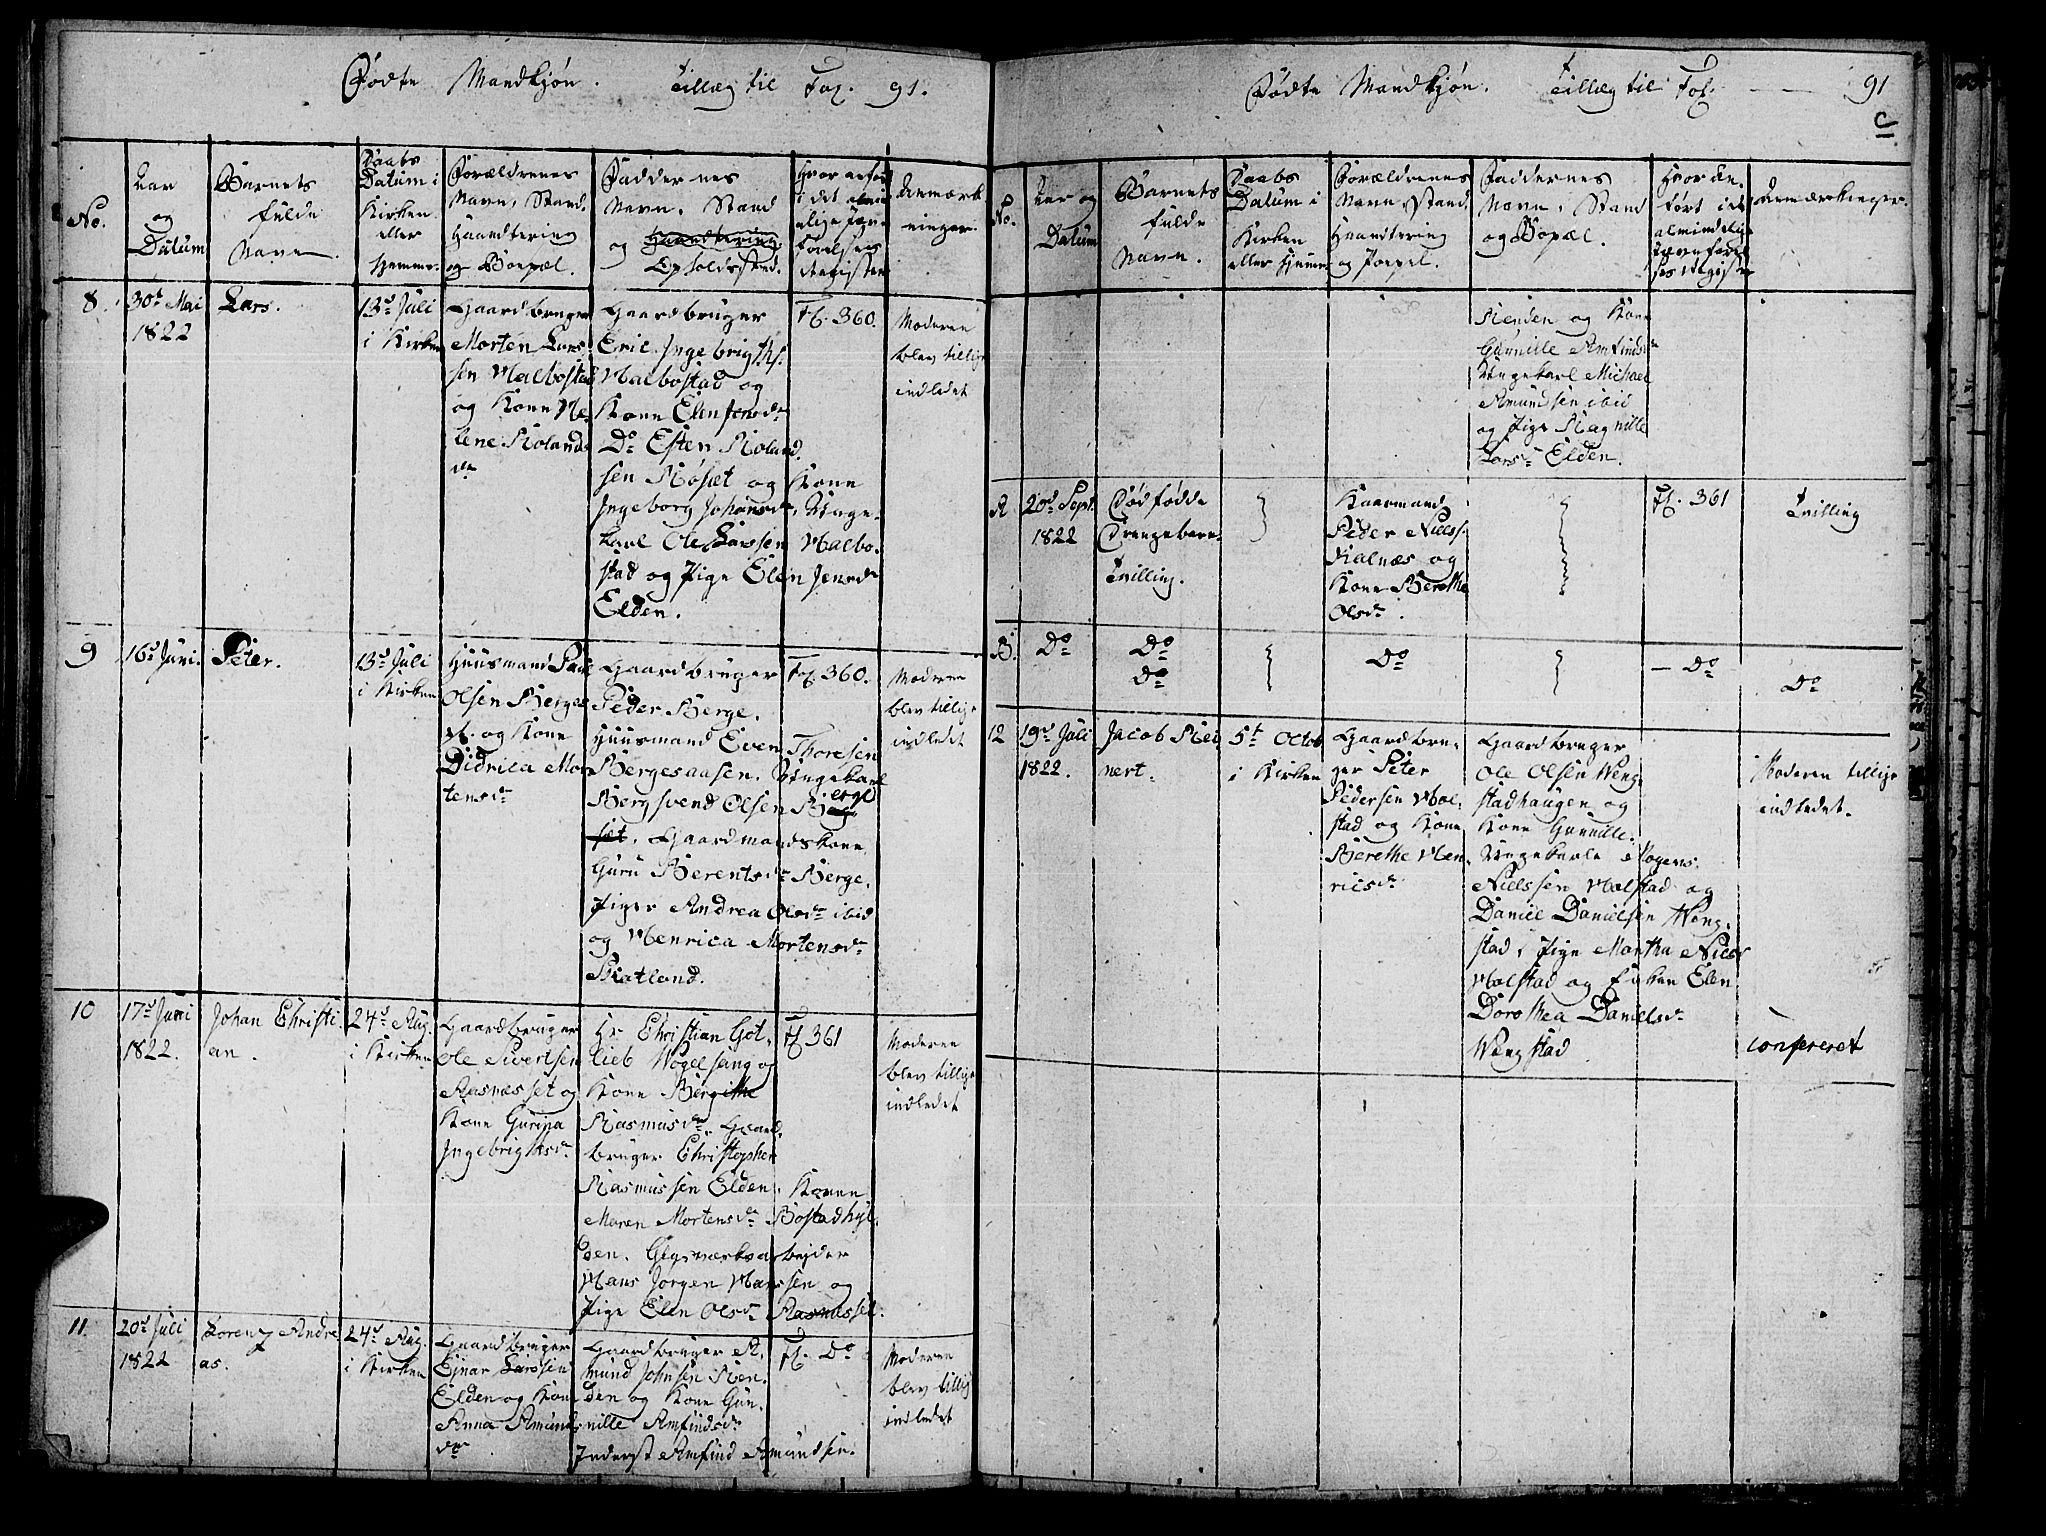 Fødte Mandkjøn. Tillæg til Fol. 91.
No.
Aar
og
Datum
Barnets
fulde
Navn.
Daabs
Datum i
Kirken
eller
Hjemme
Forældrenes
Navn, Stand,
Haandtering
og Boepæl.
Faddernes
Navn, Stand
og Haandtering
Opholdssted.
Hvor anført
i det almin
elige Jævn
førelses
Register
Anmærk
ninger.
8.
30t Mai
1822
Lars.
13d Juli
i Kirken
Gaardbruger
Morten Lars
sen Malbostad
og Kone He
lene Rolands
dr
Gaardbruger
Eric Ingebrigths.
Malbostad og
Kone Elen Jensdr
Do Esten Roland
sen Røset og Kone
Ingeborg Johansdr, Unge-
karl Ole Larssen Malbo-
stad og Pige Elen Jensdr
Elden.
Fol. 360.
Moderen
blev tillige
indledet
9
16d Juni.
Peter.
13d Juli
i Kirken
Huusmand Paul
Olsen Berges
og Kone
Didrica Mor
tensdr
Gaardbruger
Peder Berge.
Huusmand Even Thoresen
Bergesaasen. Ungekarl
Bergsvend Olsen Berge
set. Gaardmandskone
Guru Berentsdr Berge.
Piger Andrea Olsdr ibid
og Henrica Mortensdr
Skatland.
Fol. 360.
Moderen
blev tillige
indledet
10
17d Juni
1822.
Johan Christi
an.
24d Aug.
i Kirken
Gaardbruger
Ole Sivertsen
Rasmusset og
Kone Gurina
Ingebrigtsdr
Hr Christian Got
lieb Vogelsang og
Kone Bergithe
Rasmusdr. Gaard
bruger Christopher
Rasmussen Elden. Konen
Maren Mortensdr Bostadhyl-
den. Glasværksarbejder
Hans Jørgen Hanssen og
Pige Elen Olsdr Rasmusset.
Fol 361
Moderen
blev tillige
indledet
11.
20d Juli
1822
Lorenz Andre
as.
24d Aug.
i Kirken
Gaardbruger
Ejnar Larssen
Elden og Kone
Anna Amunds
dr
Gaardbruger A-
mund Johnsen Ren-
den og Kone Gun-
nille Arnfindsdr
Inderst Arnfind Amundsen.
Fol. Do
Moderen
blev tillig
indledet
Fødte Mandkjøn. Tillæg til Fol. 91
C
No.
Aar og
Datum
Barnets
fulde
Navn.
Daabs
Datum i
Kirken
eller Hjemme
Forældrenes
Navn, Stand,
Haandtering
og Boepæl.
Faddernes
Navn, Stand
og Bopæl.
Hvor an-
ført i det
almindelige
Jævnførel
ses Register
Anmærkninger.
Renden og Kone
Gunnille Arnfindsdr
Ungekarl Michael
Amundsen ibid
og Pige Ragnille
Larsdr Elden.
A
20d Sept.
1822
Dødfødde
Drengebarn
Tvilling.
Kaarmand
Peder Nielss.
Kalnæs og
Kone Berethe
Olsdr.
Fol. 361
Tvilling
B.
Do
Do
Do
Do
Do
Do
12
19d Juli
1822.
Jacob Rei
nert.
5t Octob
i Kirken
Gaardbru-
ger Peter
Pedersen Mal-
stad og Kone
Berethe Hen
ricsdr
Gaardbruger
Ole Olsen Weng-
stadhaugen og
Kone Gunnille.
Ungekarle Mogens
Nielssen Malstad og
Daniel Danielsen Weng-
stad, Pige Martha Niels
Malstad og Enken Elen
Dorothea Danielsdr
Wengstad
Moderen tillige
indledet.
Confereret